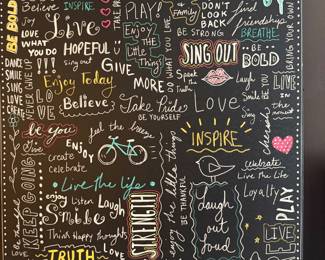 BE BOLD
believe
INSPIRE
Joy
LOVE
Love
WHAT YOU DO
HOPEFUL
TAKE PRIDE
PLAY
ENJOY THE
Little
Things
Family
DON'T LOOK
BACK
BE STRONG
find
friendship
BREATHE
BRING YOUR OWN
DANCE
SMILE
SING
LOVE
CREATE
LOVE
NEVER GIVE
sing out
Enjoy Today
Believe
GIVE
MORE
SING OUT
Speak
the
Truth
BE
BOLD
Laugh
Smile
Sing
LOVE
LIVE
in the
moment
Take Pride
BE YOURSELF
Love
be you
feel the breeze
INSPIRE
cherish
ENJOY
create
celebrate
KEEP GOING
Live the life
enjoy the little things
BE THANKFUL
celebrate
Live the Life
Loyalty
PLAY
enjoy
Listen
Laugh
STRENGTH
laugh
out
loud
Be thankful
Think Happy thoughts
LIVE
TRUTH
LOVE